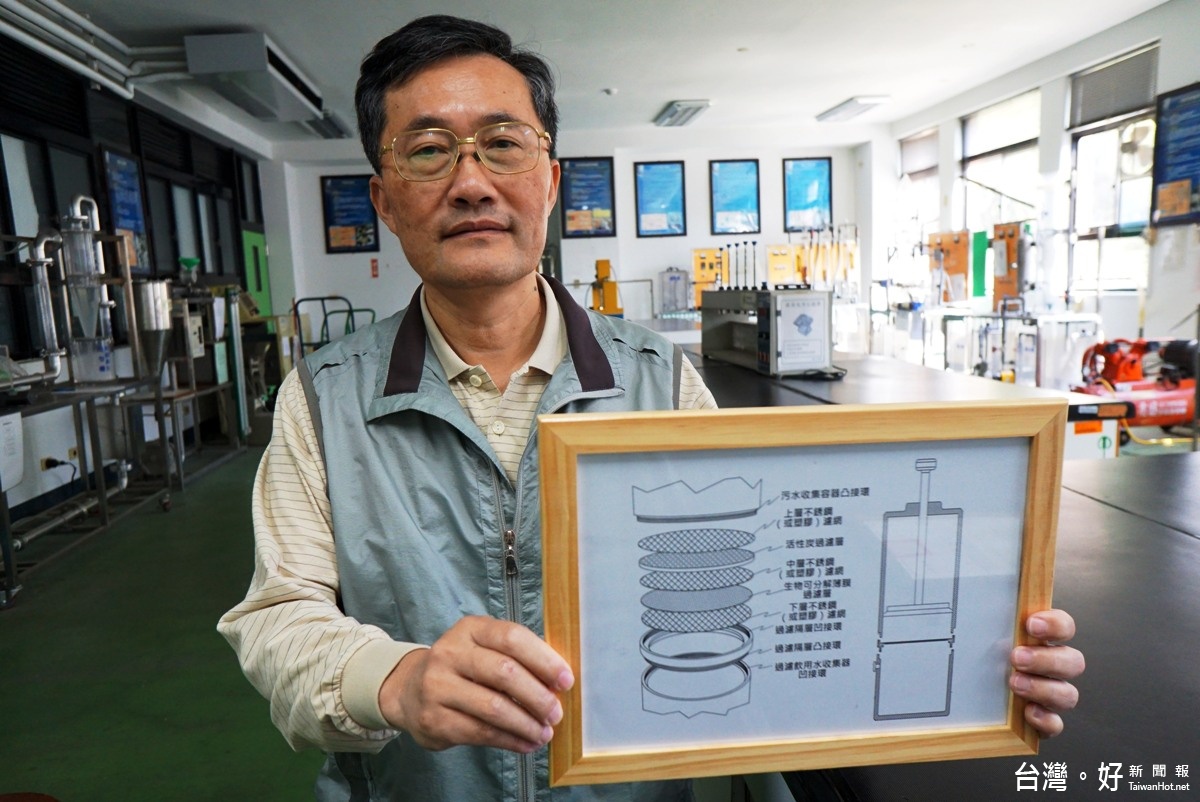 污水收集容器凸接環
上層不銹鋼
（或塑膠）濾網
活性炭過濾層
中層不銹鋼
（或塑膠）濾網
生物可分解薄膜
過濾層
下層不銹鋼
（或塑膠）濾網
過濾隔層凹接環
過濾隔層凸接環
過濾飲用水收集器
凹接環
台灣。好新聞報
TaiwanHot.net